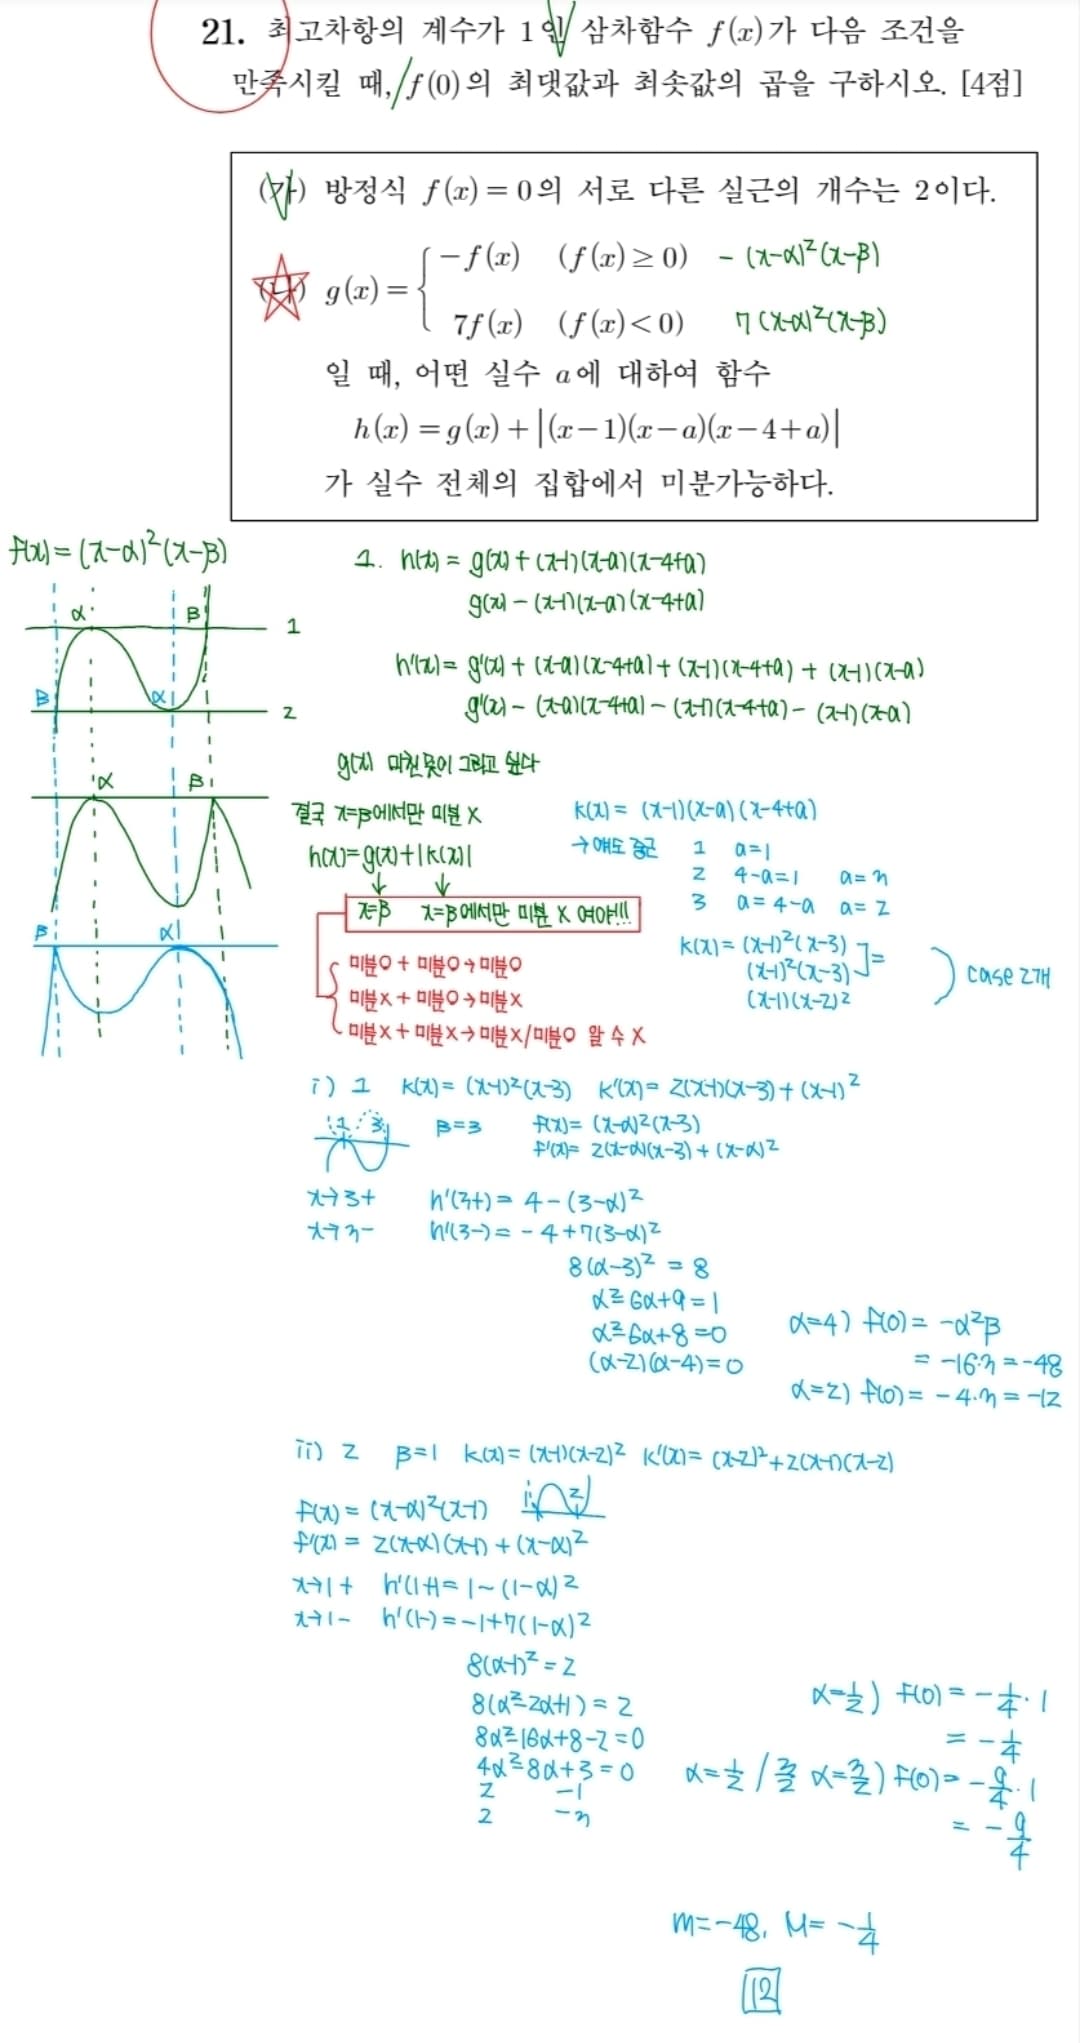 21. 최고차항의 계수가 1인 삼차함수 f(x)가 다음 조건을
만족시킬 때, f(0)의 최댓값과 최솟값의 곱을 구하시오. [4점]
(가) 방정식 f(x)=0의 서로 다른 실근의 개수는 2이다.
(나) g(x) = { -f(x) (f(x) ≥ 0) - (x-α)²(x-β)
7f(x) (f(x) < 0) 7(x-α)²(x-β)
일 때, 어떤 실수 a에 대하여 함수
h(x) = g(x) + |(x-1)(x-a)(x-4+a)|
가 실수 전체의 집합에서 미분가능하다.
f(x) = (x-α)²(x-β)
α β 1
β α 2
α β
β α
1. h(x) = g(x) + (x-1)(x-a)(x-4+a)
g(x) - (x-1)(x-a)(x-4+a)
h'(x) = g'(x) + (x-a)(x-4+a) + (x-1)(x-4+a) + (x-1)(x-a)
g'(x) - (x-a)(x-4+a) - (x-1)(x-4+a) - (x-1)(x-a)
g(x) 미친듯이 그리고 싶다
결국 x=β에서만 미분 X
h(x)=g(x)+|k(x)|
↓ ↓
x=β x=β에서만 미분 X 여야!!!
미분O + 미분O → 미분O
미분X + 미분O → 미분X
미분X + 미분X → 미분X/미분O 알 수 X
k(x) = (x-1)(x-a)(x-4+a)
→ 얘도 중근 1 a=1
2 4-a=1 a=3
3 a=4-a a=2
k(x) = (x-1)²(x-3)
(x-1)²(x-3) ] =
(x-1)(x-2)²
) case 2개
i) 1 k(x) = (x-1)²(x-3) k'(x) = 2(x-1)(x-3) + (x-1)²
1 3 β=3 f(x) = (x-α)²(x-3)
f'(x) = 2(x-α)(x-3) + (x-α)²
x→3+ h'(3+) = 4 - (3-α)²
x→3- h'(3-) = -4+7(3-α)²
8(α-3)² = 8
α²-6α+9 = 1
α²-6α+8 = 0
(α-2)(α-4) = 0
α=4) f(0) = -α²β
= -16·3 = -48
α=2) f(0) = -4·3 = -12
ii) 2 β=1 k(x) = (x-1)(x-2)² k'(x) = (x-2)²+2(x-1)(x-2)
f(x) = (x-α)²(x-1) 1 2
f'(x) = 2(x-α)(x-1) + (x-α)²
x→1+ h'(1+) = 1-(1-α)²
x→1- h'(1-) = -1+7(1-α)²
8(α-1)² = 2
8(α²-2α+1) = 2
8α²-16α+8-2 = 0
4α²-8α+3 = 0
2 -1
2 -3
α = 1/2 / 3/2
α=1/2) f(0) = -1/4·1
= -1/4
α=3/2) f(0) = -9/4·1
= -9/4
m=-48, M= -1/4
12